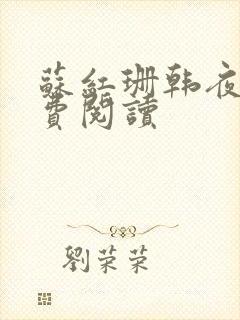 蘇紅珊韩夜
費閱讀
劉荣荣